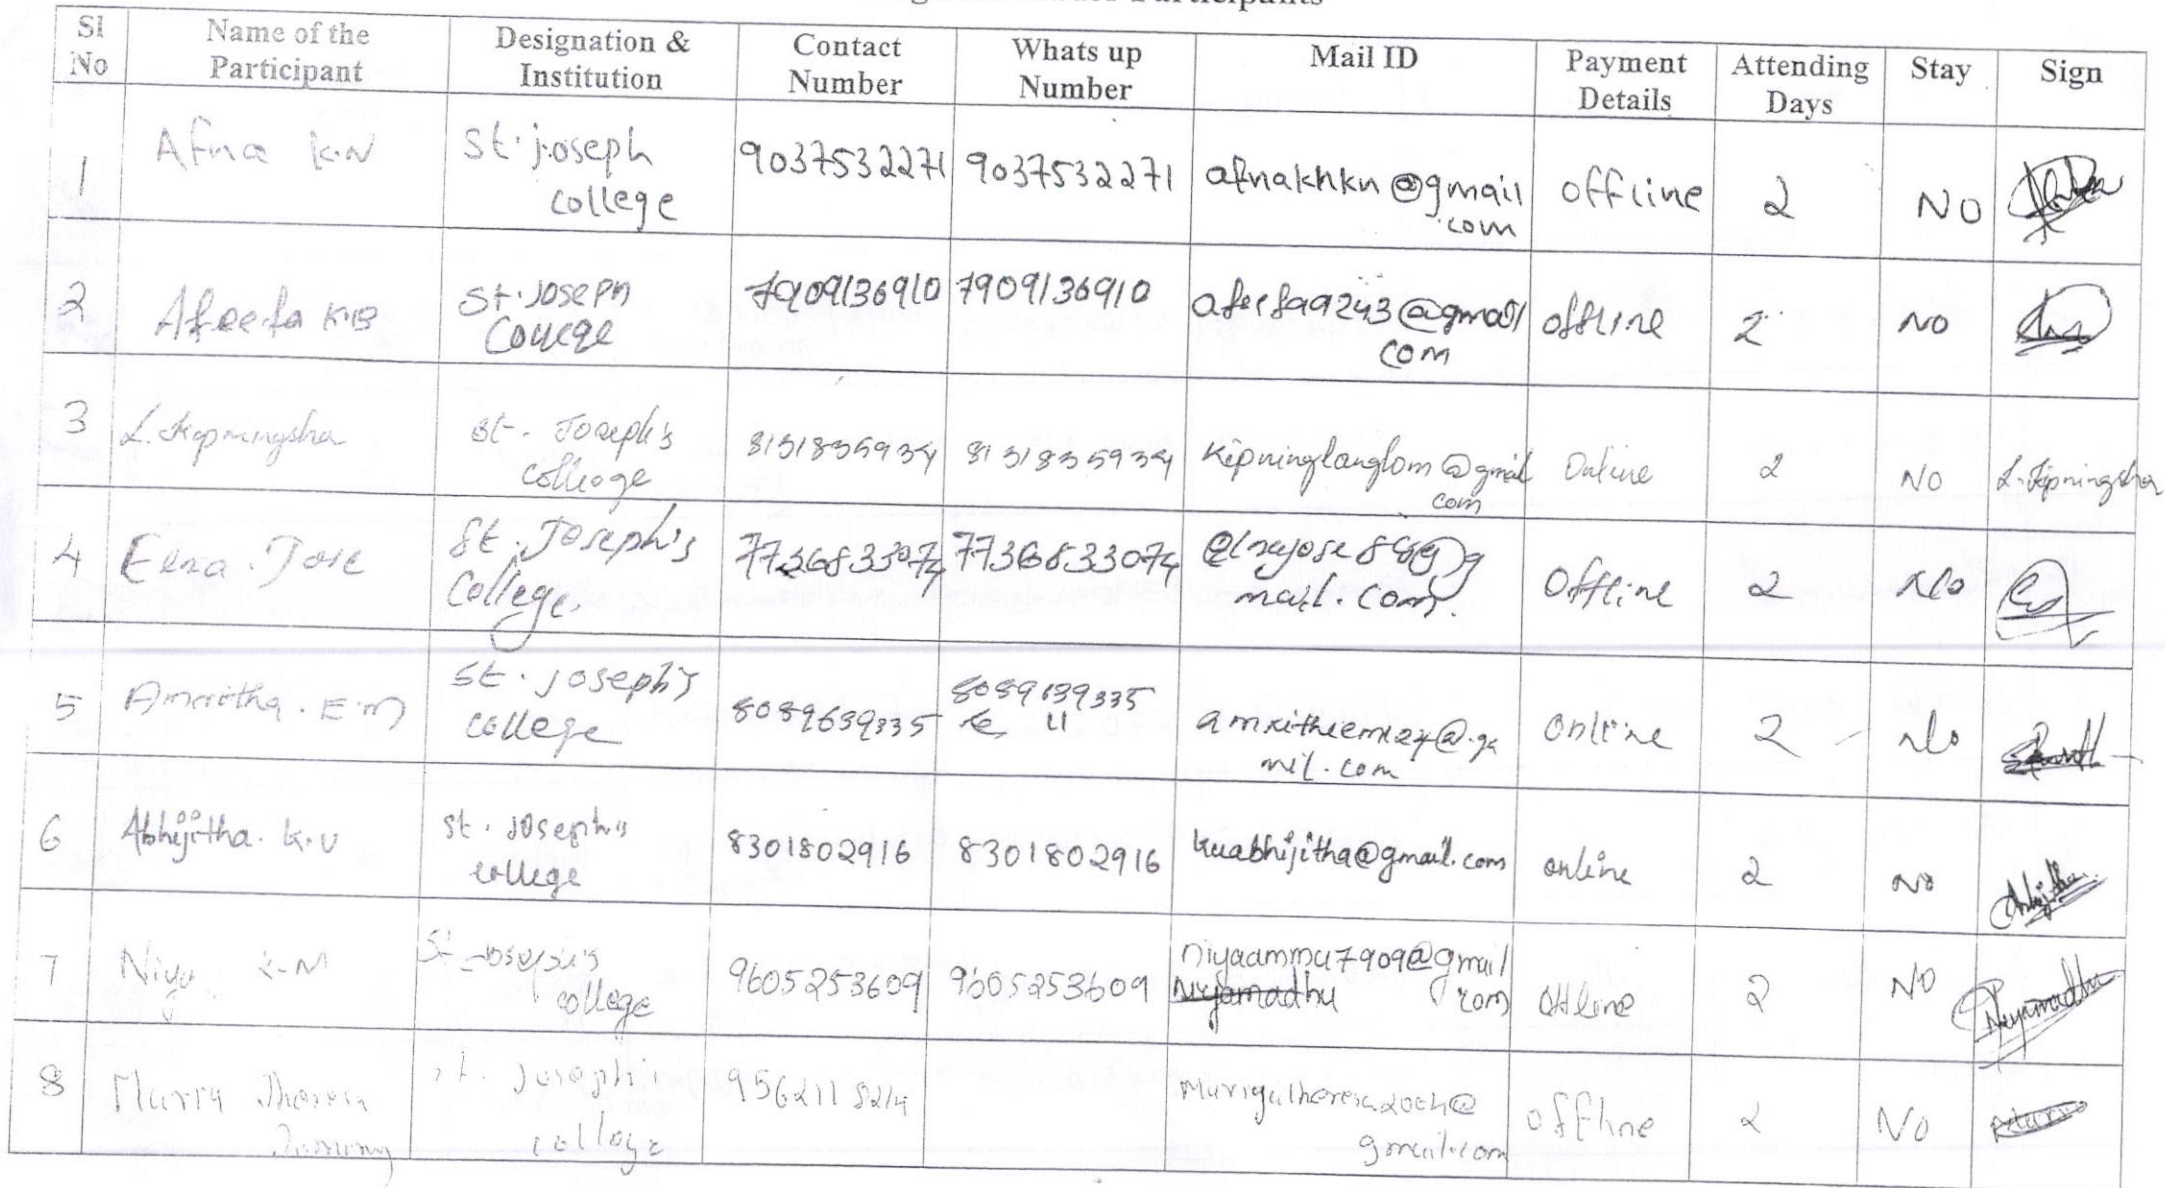 Participants
Sl No | Name of the Participant | Designation & Institution | Contact Number | Whats up Number | Mail ID | Payment Details | Attending Days | Stay | Sign
1 | Afna K.N | St. joseph college | 9037532271 | 9037532271 | afnakhkn@gmail.com | offline | 2 | NO
2 | Afeefa KB | St. Joseph College | 7909136910 | 7909136910 | afeefa9243@gmail com | offline | 2 | NO
3 | L. Kipningsha | St. Joseph's college | 8131835934 | 8131835934 | Kipninglanglom@gmail com | Online | 2 | NO | L. Kipningsha
4 | Elza. Jose | St. Joseph's College | 7736833074 | 7736833074 | mail.com | Offline | 2 | No
5 | Amritha. E.M | St. Joseph's college | 8089639335 | 8089639335 | mil.com | Online | 2 | No
6 | Abhijitha. K.V | St. Joseph's college | 8301802916 | 8301802916 | kvabhijitha@gmail.com | online | 2 | No | Abhijitha
7 | Niya K.M | St. Joseph's college | 9605253609 | 9605253609 | niyaammu7909@gmail com Niyamadhu | offline | 2 | NO | Niyamadhu
8 | Maria | St. Joseph's college | gmail.com | offline | 2 | NO